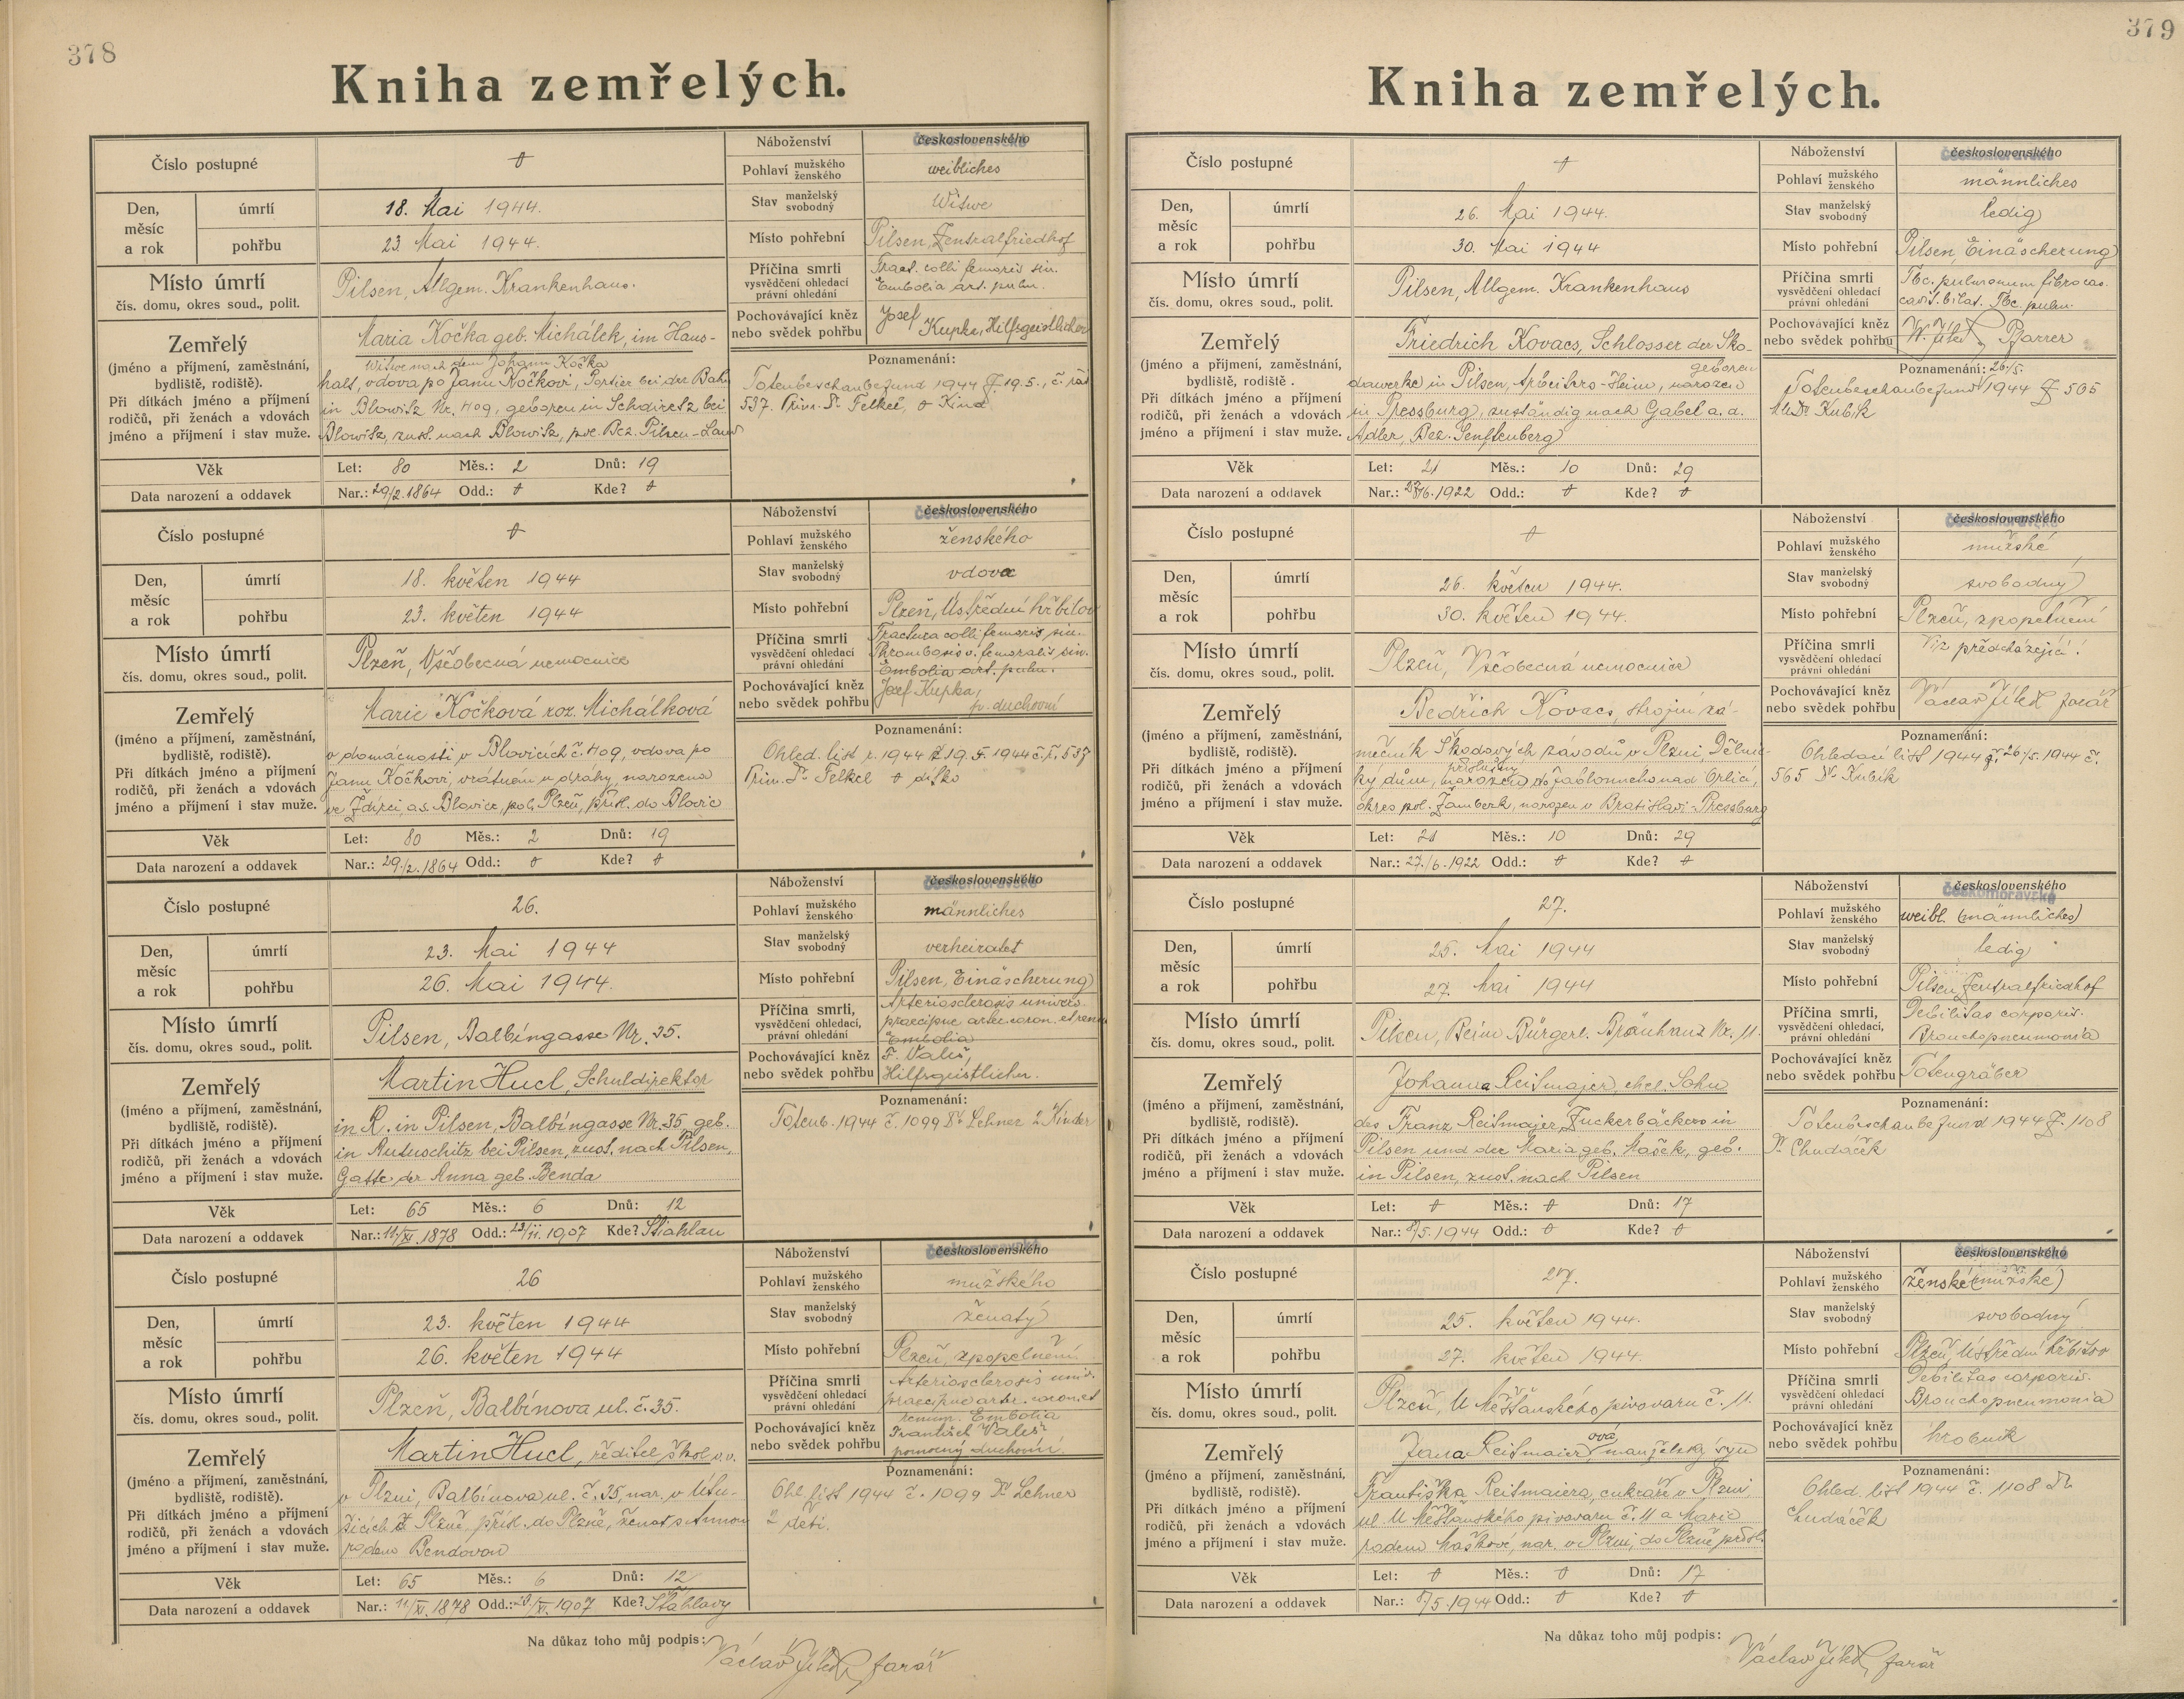 378
Kniha zemřelých.
Číslo postupné
Den, měsíc a rok
úmrtí
18. Mai 1944.
pohřbu
23. Mai 1944.
Místo úmrtí
čís. domu, okres soud., polit.
Pilsen, Allgem. Krankenhaus.
Zemřelý
(jméno a příjmení, zaměstnání,
bydliště, rodiště).
Při dítkách jméno a příjmení
rodičů, při ženách a vdovách
jméno a příjmení i stav muže.
Maria Kočka geb. Michálek, im Haus-
Witwe nach dem Johann Kočka
halt, vdova po Janu Kočkovi, Portier bei der Bahn
in Blowitz Nr. 409, geboren in Schdiretz bei
Blowitz, zust. nach Blowitz, pol. Bez. Pilsen-Land
Věk
Let: 80 Měs.: 2 Dnů: 19
Data narození a oddavek
Nar.: 29/2.1864 Odd.: Kde?
Náboženství
československého
českomoravské
Pohlaví mužského ženského
weibliches
Stav manželský svobodný
Witwe
Místo pohřební
Pilsen, Zentralfriedhof
Příčina smrti
vysvědčení ohledací
právní ohledání
Fract. colli femoris sin.
Embolia art. pulm.
Pochovávající kněz
nebo svědek pohřbu
Josef
Kupka, Hilfsgeistlicher
Poznamenání:
Totenbeschaubefund 1944 Z 19.5., č. řad
537. Prim. Dr. Felkel, Kind
Číslo postupné
Den, měsíc a rok
úmrtí
18. květen 1944
pohřbu
23. květen 1944
Místo úmrtí
čís. domu, okres soud., polit.
Plzeň, Všeobecná nemocnice
Zemřelý
(jméno a příjmení, zaměstnání,
bydliště, rodiště).
Při dítkách jméno a příjmení
rodičů, při ženách a vdovách
jméno a příjmení i stav muže.
Marie Kočková roz. Michálková
v domácnosti v Blovicích č. 409, vdova po
Janu Kočkovi, vrátném u dráhy, narozena
ve Ždírci, o.s. Blovice, pol. Plzeň, přísl. do Blovic
Věk
Let: 80 Měs.: 2 Dnů: 19
Data narození a oddavek
Nar.: 29./2.1864 Odd.: Kde?
Náboženství
československého
českomoravské
Pohlaví mužského ženského
ženského
Stav manželský svobodný
vdova
Místo pohřební
Plzeň, Ústřední hřbitov
Příčina smrti
vysvědčení ohledací
právní ohledání
Fractura colli femoris sin.
Thrombosis v. femoralis sin.
Embolia art. pulm.
Pochovávající kněz
nebo svědek pohřbu
Josef Kupka,
p. duchovní
Poznamenání:
Ohled. list r. 1944 z 19.5.1944 č. ř. 537
Prim. Dr. Felkel dítko
Číslo postupné
26.
Den, měsíc a rok
úmrtí
23. Mai 1944
pohřbu
26. Mai 1944.
Místo úmrtí
čís. domu, okres soud., polit.
Pilsen, Balbíngasse Nr. 35.
Zemřelý
(jméno a příjmení, zaměstnání,
bydliště, rodiště).
Při dítkách jméno a příjmení
rodičů, při ženách a vdovách
jméno a příjmení i stav muže.
Martin Hucl, Schuldirektor
in R. in Pilsen, Balbíngasse Nr. 35 geb.
in Autuschitz bei Pilsen, zust. nach Pilsen,
Gatte der Anna geb. Benda
Věk
Let: 65 Měs.: 6 Dnů: 12
Data narození a oddavek
Nar.: 11/XI.1878 Odd.: 23/11.1907 Kde? Stiahlau
Náboženství
československého
českomoravské
Pohlaví mužského ženského
männliches
Stav manželský svobodný
verheiratet
Místo pohřební
Pilsen, Einäscherung
Příčina smrti,
vysvědčení ohledací,
právní ohledání
Arteriosclerosis univers.
praecipue arter. coron. et renum
Embolia
Pochovávající kněz
nebo svědek pohřbu
F. Valeš,
Hilfsgeistlicher.
Poznamenání:
Totenb. 1944 č. 1099 Dr. Lehner 2 Kinder
Číslo postupné
26
Den, měsíc a rok
úmrtí
23. květen 1944
pohřbu
26. květen 1944
Místo úmrtí
čís. domu, okres soud., polit.
Plzeň, Balbínova ul. č. 35.
Zemřelý
(jméno a příjmení, zaměstnání,
bydliště, rodiště).
Při dítkách jméno a příjmení
rodičů, při ženách a vdovách
jméno a příjmení i stav muže.
Martin Hucl, ředitel škol v.v.
v Plzni, Balbínova ul. č. 35, nar. v Útu-
šicích Plzně, přísl. do Plzně, ženat s Annou
rodem Bendovou
Věk
Let: 65 Měs.: 6 Dnů: 12
Data narození a oddavek
Nar.: 11/XI.1878 Odd.: 23/XI.1907 Kde? Šťáhlavy
Náboženství
československého
českomoravské
Pohlaví mužského ženského
mužského
Stav manželský svobodný
ženatý
Místo pohřební
Plzeň, zpopelnění
Příčina smrti
vysvědčení ohledací
právní ohledání
Arteriosclerosis univ.
praecipue arter. coron. et
renum. Embolia
Pochovávající kněz
nebo svědek pohřbu
František Valeš
pomocný duchovní.
Poznamenání:
Ohl. list 1944 č. 1099 Dr Lehner
2 děti.
Na důkaz toho můj podpis:
Václav farář
379
Kniha zemřelých.
Číslo postupné
Den, měsíc a rok
úmrtí
26. Mai 1944.
pohřbu
30. Mai 1944
Místo úmrtí
čís. domu, okres soud., polit.
Pilsen, Allgem. Krankenhaus
Zemřelý
(jméno a příjmení, zaměstnání,
bydliště, rodiště).
Při dítkách jméno a příjmení
rodičů, při ženách a vdovách
jméno a příjmení i stav muže.
Friedrich Kovacs, Schlosser der Sko-
geboren
dawerke in Pilsen, Arbeiters-Heim, narozen
in Pressburg, zuständig nach Gabel a. a.
Adler, Bez. Senftenberg
Věk
Let: 21 Měs.: 10 Dnů: 29
Data narození a oddavek
Nar.: 27/6.1922 Odd.: Kde?
Náboženství
československého
českomoravské
Pohlaví mužského ženského
männliches
Stav manželský svobodný
ledig
Místo pohřební
Pilsen, Einäscherung
Příčina smrti
vysvědčení ohledací
právní ohledání
Tbc. pulmonum fibrocas.
cavit. bilat. Tbc. pulm.
Pochovávající kněz
nebo svědek pohřbu
W. Pfarrer
Poznamenání:
26./5.
Totenbeschaubefund 1944 Z 565
MUDr Kubík
Číslo postupné
Den, měsíc a rok
úmrtí
26. květen 1944.
pohřbu
30. květen 1944.
Místo úmrtí
čís. domu, okres soud., polit.
Plzeň, Všeobecná nemocnice
Zemřelý
(jméno a příjmení, zaměstnání,
bydliště, rodiště).
Při dítkách jméno a příjmení
rodičů, při ženách a vdovách
jméno a příjmení i stav muže.
Bedřich Kovacs, strojní zá-
mečník Škodových závodů v Plzni, Dělnic-
příslušný
ký dům, narozen do Jablonného nad Orlicí,
okres pol. Žamberk, narozen v Bratislavi-Pressburg
Věk
Let: 21 Měs.: 10 Dnů: 29
Data narození a oddavek
Nar.: 27./6.1922 Odd.: Kde?
Náboženství
československého
českomoravské
Pohlaví mužského ženského
mužské
Stav manželský svobodný
svobodný
Místo pohřební
Plzeň, zpopelnění
Příčina smrti
vysvědčení ohledací
právní ohledání
Viz předcházející!
Pochovávající kněz
nebo svědek pohřbu
Václav farář
Poznamenání:
Ohledací list 1944 26./5.1944 č.
565 Dr Kubík
Číslo postupné
27.
Den, měsíc a rok
úmrtí
25. Mai 1944
pohřbu
27. Mai 1944
Místo úmrtí
čís. domu, okres soud., polit.
Pilsen, Beim Bürgerl. Bräuhaus Nr. 11.
Zemřelý
(jméno a příjmení, zaměstnání,
bydliště, rodiště).
Při dítkách jméno a příjmení
rodičů, při ženách a vdovách
jméno a příjmení i stav muže.
Johanna Reitmajer, ehel. Sohn
des Franz Reitmajer, Zuckerbäckers in
Pilsen und der Maria geb. Mašek, geb.
in Pilsen, zust. nach Pilsen
Věk
Let: Měs.: Dnů: 17
Data narození a oddavek
Nar.: 8/5.1944 Odd.: Kde?
Náboženství
československého
českomoravské
Pohlaví mužského ženského
weibl. (männliches)
Stav manželský svobodný
ledig
Místo pohřební
Pilsen Zentralfriedhof
Příčina smrti,
vysvědčení ohledací,
právní ohledání
Debilitas corporis.
Bronchopneumonia
Pochovávající kněz
nebo svědek pohřbu
Totengräber
Poznamenání:
Totenbeschaubefund 1944 Z. 1108
Dr Chudáček
Číslo postupné
27.
Den, měsíc a rok
úmrtí
25. květen 1944.
pohřbu
27. květen 1944.
Místo úmrtí
čís. domu, okres soud., polit.
Plzeň, U Měšťanského pivovaru č. 11.
Zemřelý
(jméno a příjmení, zaměstnání,
bydliště, rodiště).
Při dítkách jméno a příjmení
rodičů, při ženách a vdovách
jméno a příjmení i stav muže.
ová
Jana Reitmaier, manželský syn
Františka Reitmaiera, cukráře v Plzni,
ul. U Měšťanského pivovaru č. 11 a Marie
rodem Maškové, nar. v Plzni, do Plzně přísl.
Věk
Let: Měs.: Dnů: 17
Data narození a oddavek
Nar.: 8/5.1944 Odd.: Kde?
Náboženství
československého
českomoravské
Pohlaví mužského ženského
ženské (mužské)
Stav manželský svobodný
svobodný
Místo pohřební
Plzeň, Ústřední hřbitov
Příčina smrti
vysvědčení ohledací
právní ohledání
Debilitas corporis.
Bronchopneumonia
Pochovávající kněz
nebo svědek pohřbu
hrobník
Poznamenání:
Ohled. list 1944 č. 1108 Dr
Chudáček
Na důkaz toho můj podpis:
Václav farář